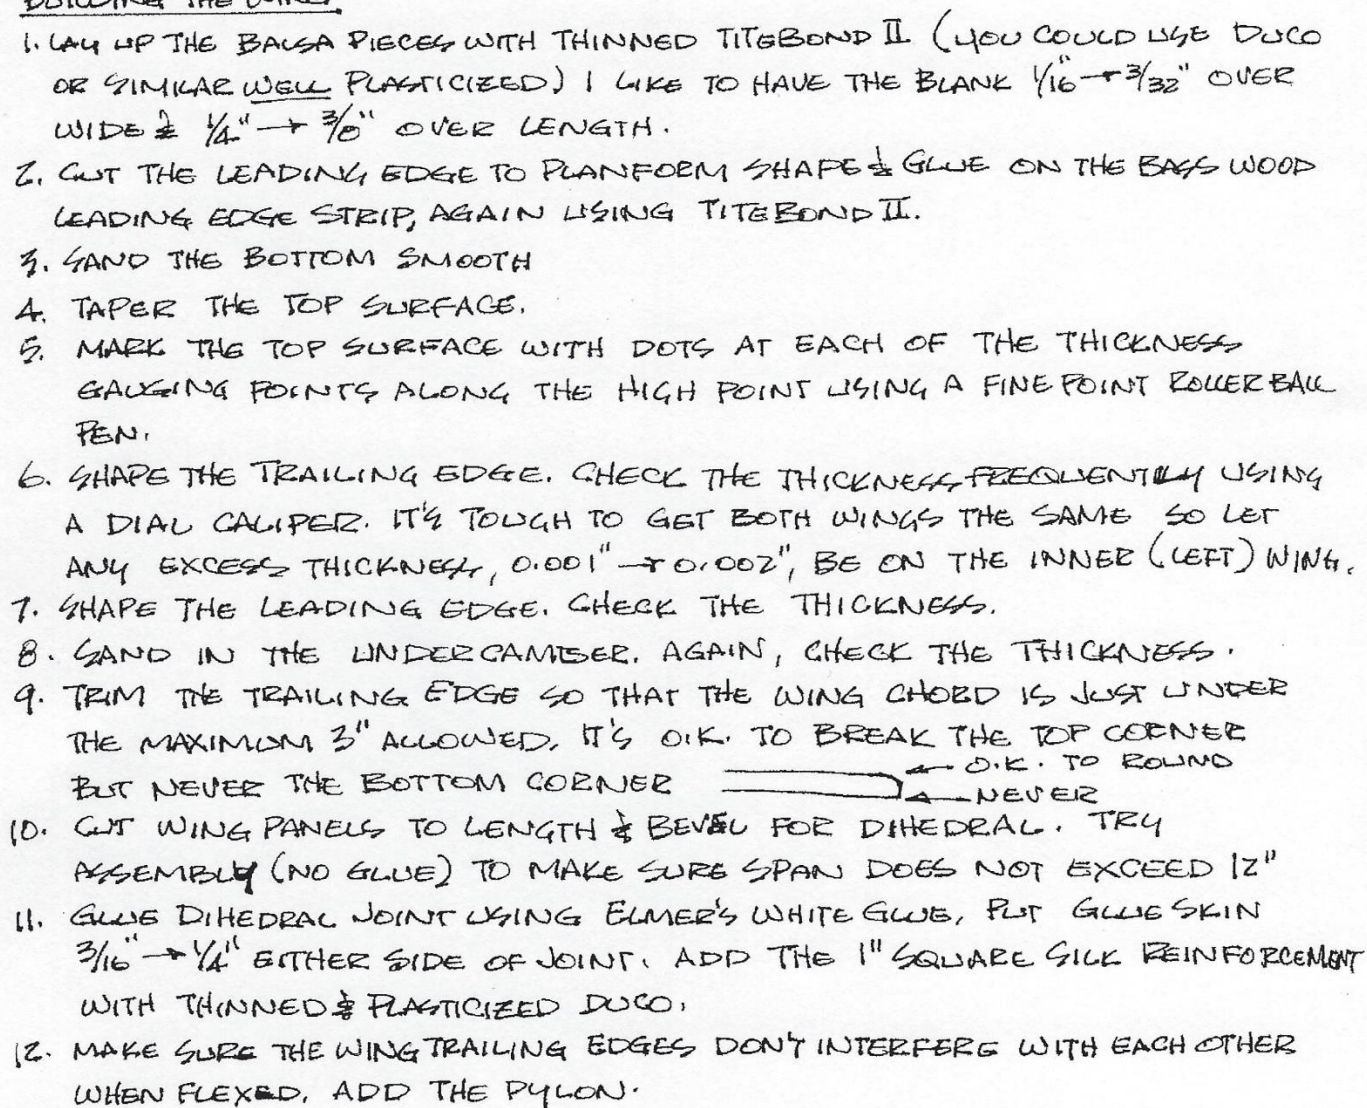 BUILDING THE WING
1. LAY UP THE BALSA PIECES WITH THINNED TITEBOND II (YOU COULD USE DUCO
OR SIMILAR WELL PLASTICIZED) I LIKE TO HAVE THE BLANK 1/16" → 3/32" OVER
WIDE & 1/4" → 3/8" OVER LENGTH.
2. CUT THE LEADING EDGE TO PLANFORM SHAPE & GLUE ON THE BASS WOOD
LEADING EDGE STRIP, AGAIN USING TITEBOND II.
3. SAND THE BOTTOM SMOOTH
4. TAPER THE TOP SURFACE.
5. MARK THE TOP SURFACE WITH DOTS AT EACH OF THE THICKNESS
GAUGING POINTS ALONG THE HIGH POINT USING A FINE POINT ROLLER BALL
PEN.
6. SHAPE THE TRAILING EDGE. CHECK THE THICKNESS FREQUENTLY USING
A DIAL CALIPER. IT'S TOUGH TO GET BOTH WINGS THE SAME SO LET
ANY EXCESS THICKNESS, 0.001" → 0.002", BE ON THE INNER (LEFT) WING.
7. SHAPE THE LEADING EDGE. CHECK THE THICKNESS.
8. SAND IN THE UNDERCAMBER. AGAIN, CHECK THE THICKNESS.
9. TRIM THE TRAILING EDGE SO THAT THE WING CHORD IS JUST UNDER
THE MAXIMUM 3" ALLOWED. IT'S O.K. TO BREAK THE TOP CORNER
BUT NEVER THE BOTTOM CORNER
← O.K. TO ROUND
← NEVER
10. CUT WING PANELS TO LENGTH & BEVEL FOR DIHEDRAL. TRY
ASSEMBLY (NO GLUE) TO MAKE SURE SPAN DOES NOT EXCEED 12"
11. GLUE DIHEDRAL JOINT USING ELMER'S WHITE GLUE, PUT GLUE SKIN
3/16" → 1/4" EITHER SIDE OF JOINT. ADD THE 1" SQUARE SILK REINFORCEMENT
WITH THINNED & PLASTICIZED DUCO.
12. MAKE SURE THE WING TRAILING EDGES DON'T INTERFERE WITH EACH OTHER
WHEN FLEXED. ADD THE PYLON.